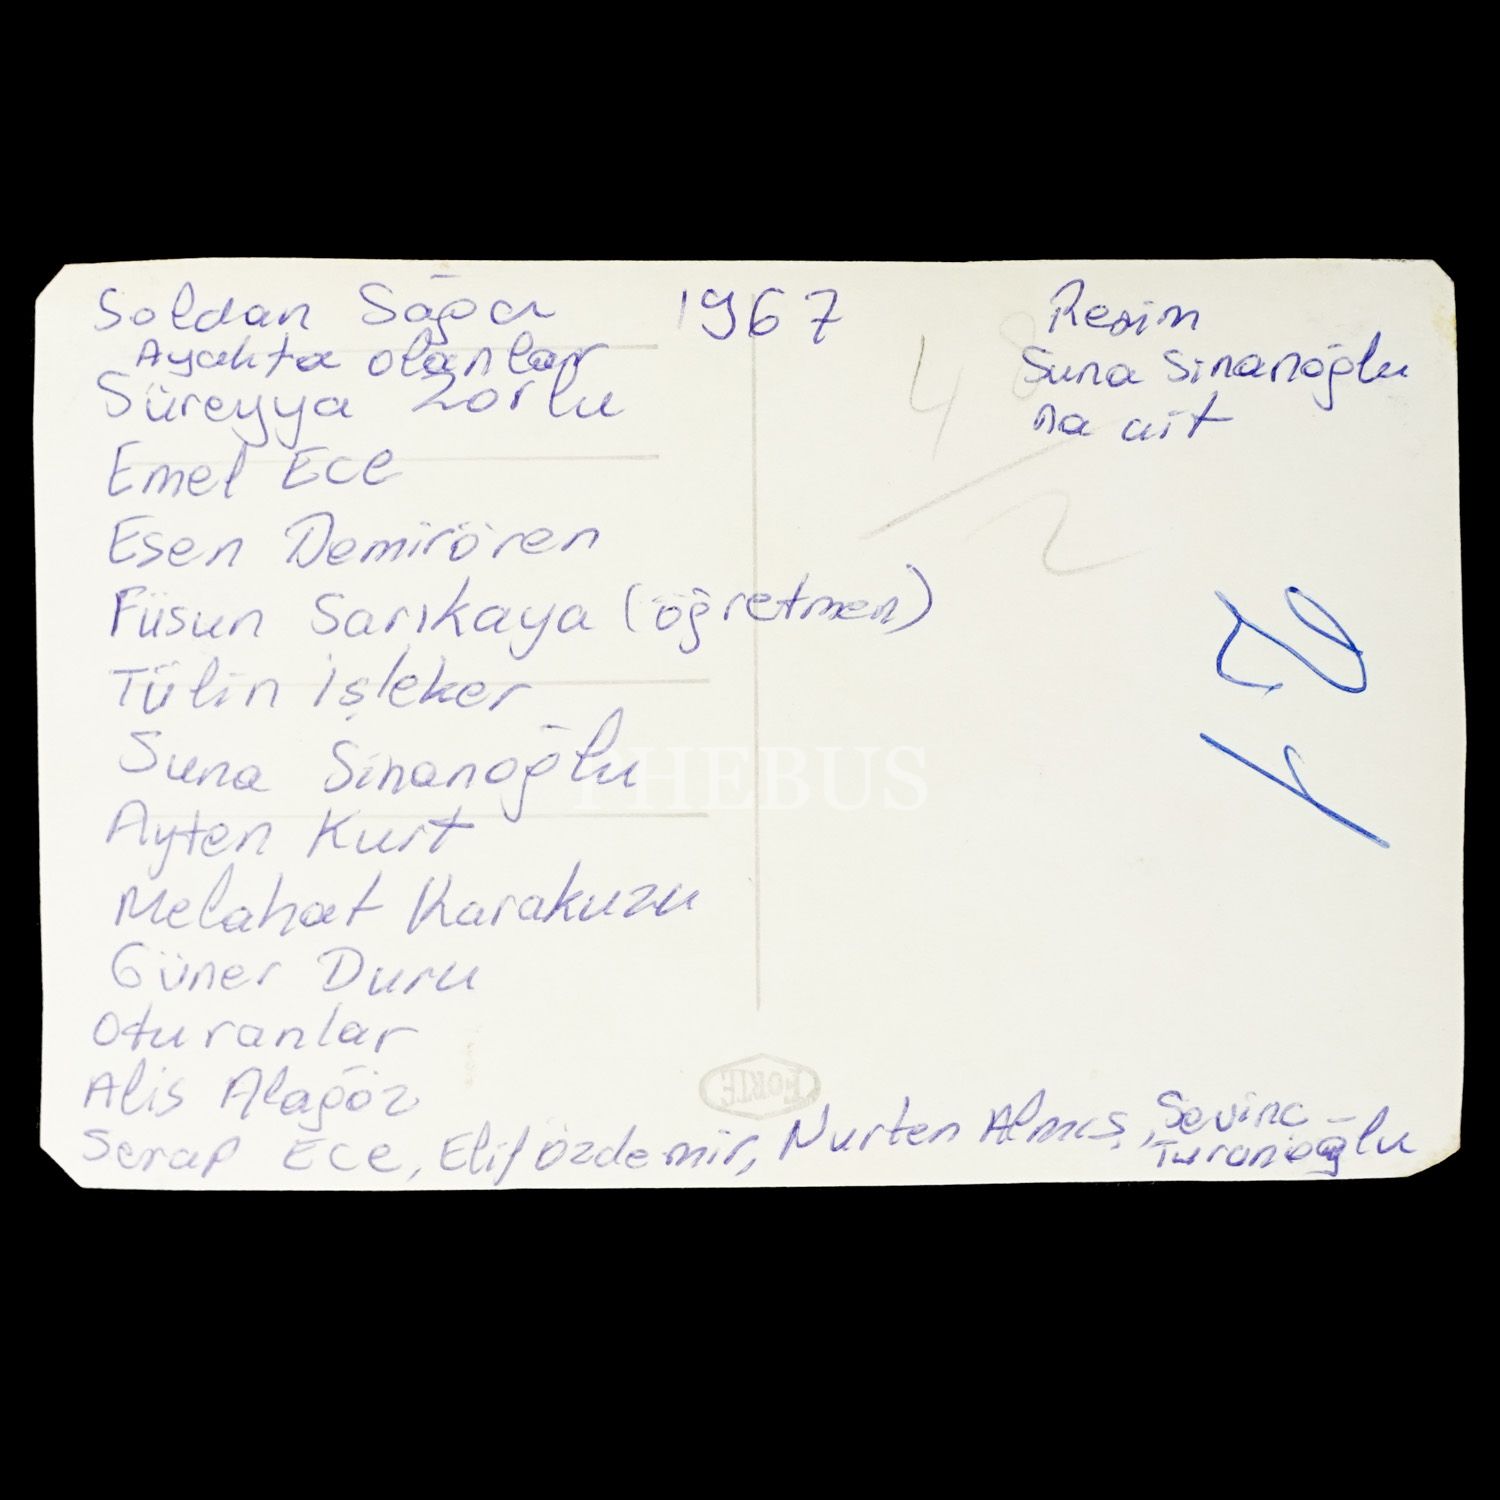 Soldan Sağa
1967
Ayakta olanlar
Süreyya Zorlu
Emel Ece
Esen Demirören
Füsun Sarıkaya (öğretmen)
Tülin İşleker
Suna Sinanoğlu
Ayten Kurt
Melahat Karakuzu
Güner Duru
Oturanlar
Alis Alagöz
Serap Ece, Elif Özdemir, Nurten Almış, Sevinc
Turanoğlu
Resim
Suna Sinanoğlu
na ait
48
PHEBUS
FORTE